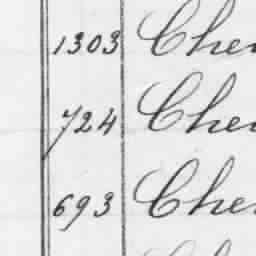 1303 Che
724 Che
693 Che